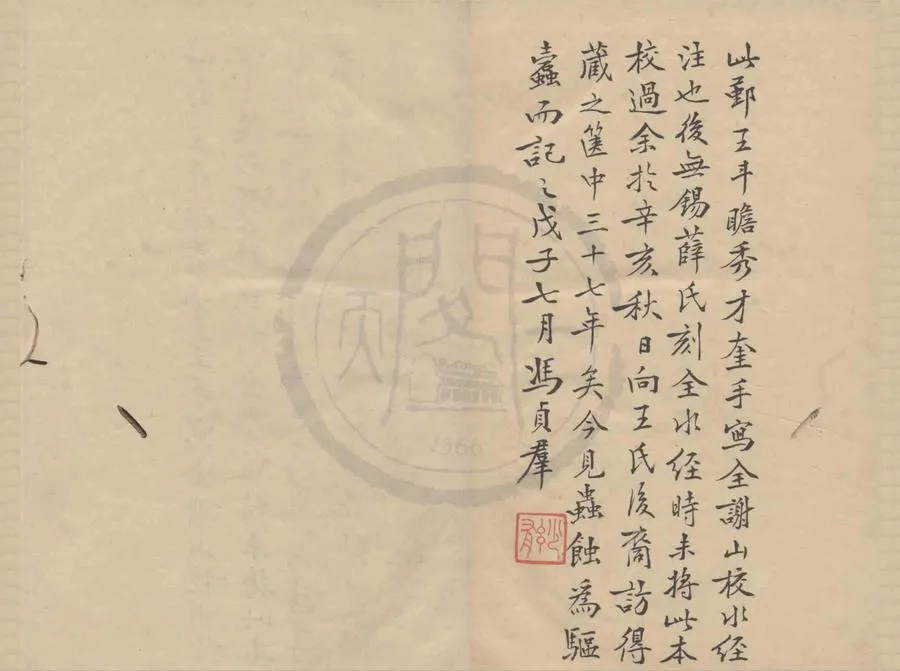 此鄞王斗瞻秀才奎手寫全謝山校水經
注也後無錫薛氏刻全水經時未將此本
校過余於辛亥秋日向王氏後裔訪得
藏之篋中三十七年矣今見蟲蝕為驅
蠹而記之戊子七月馮貞羣